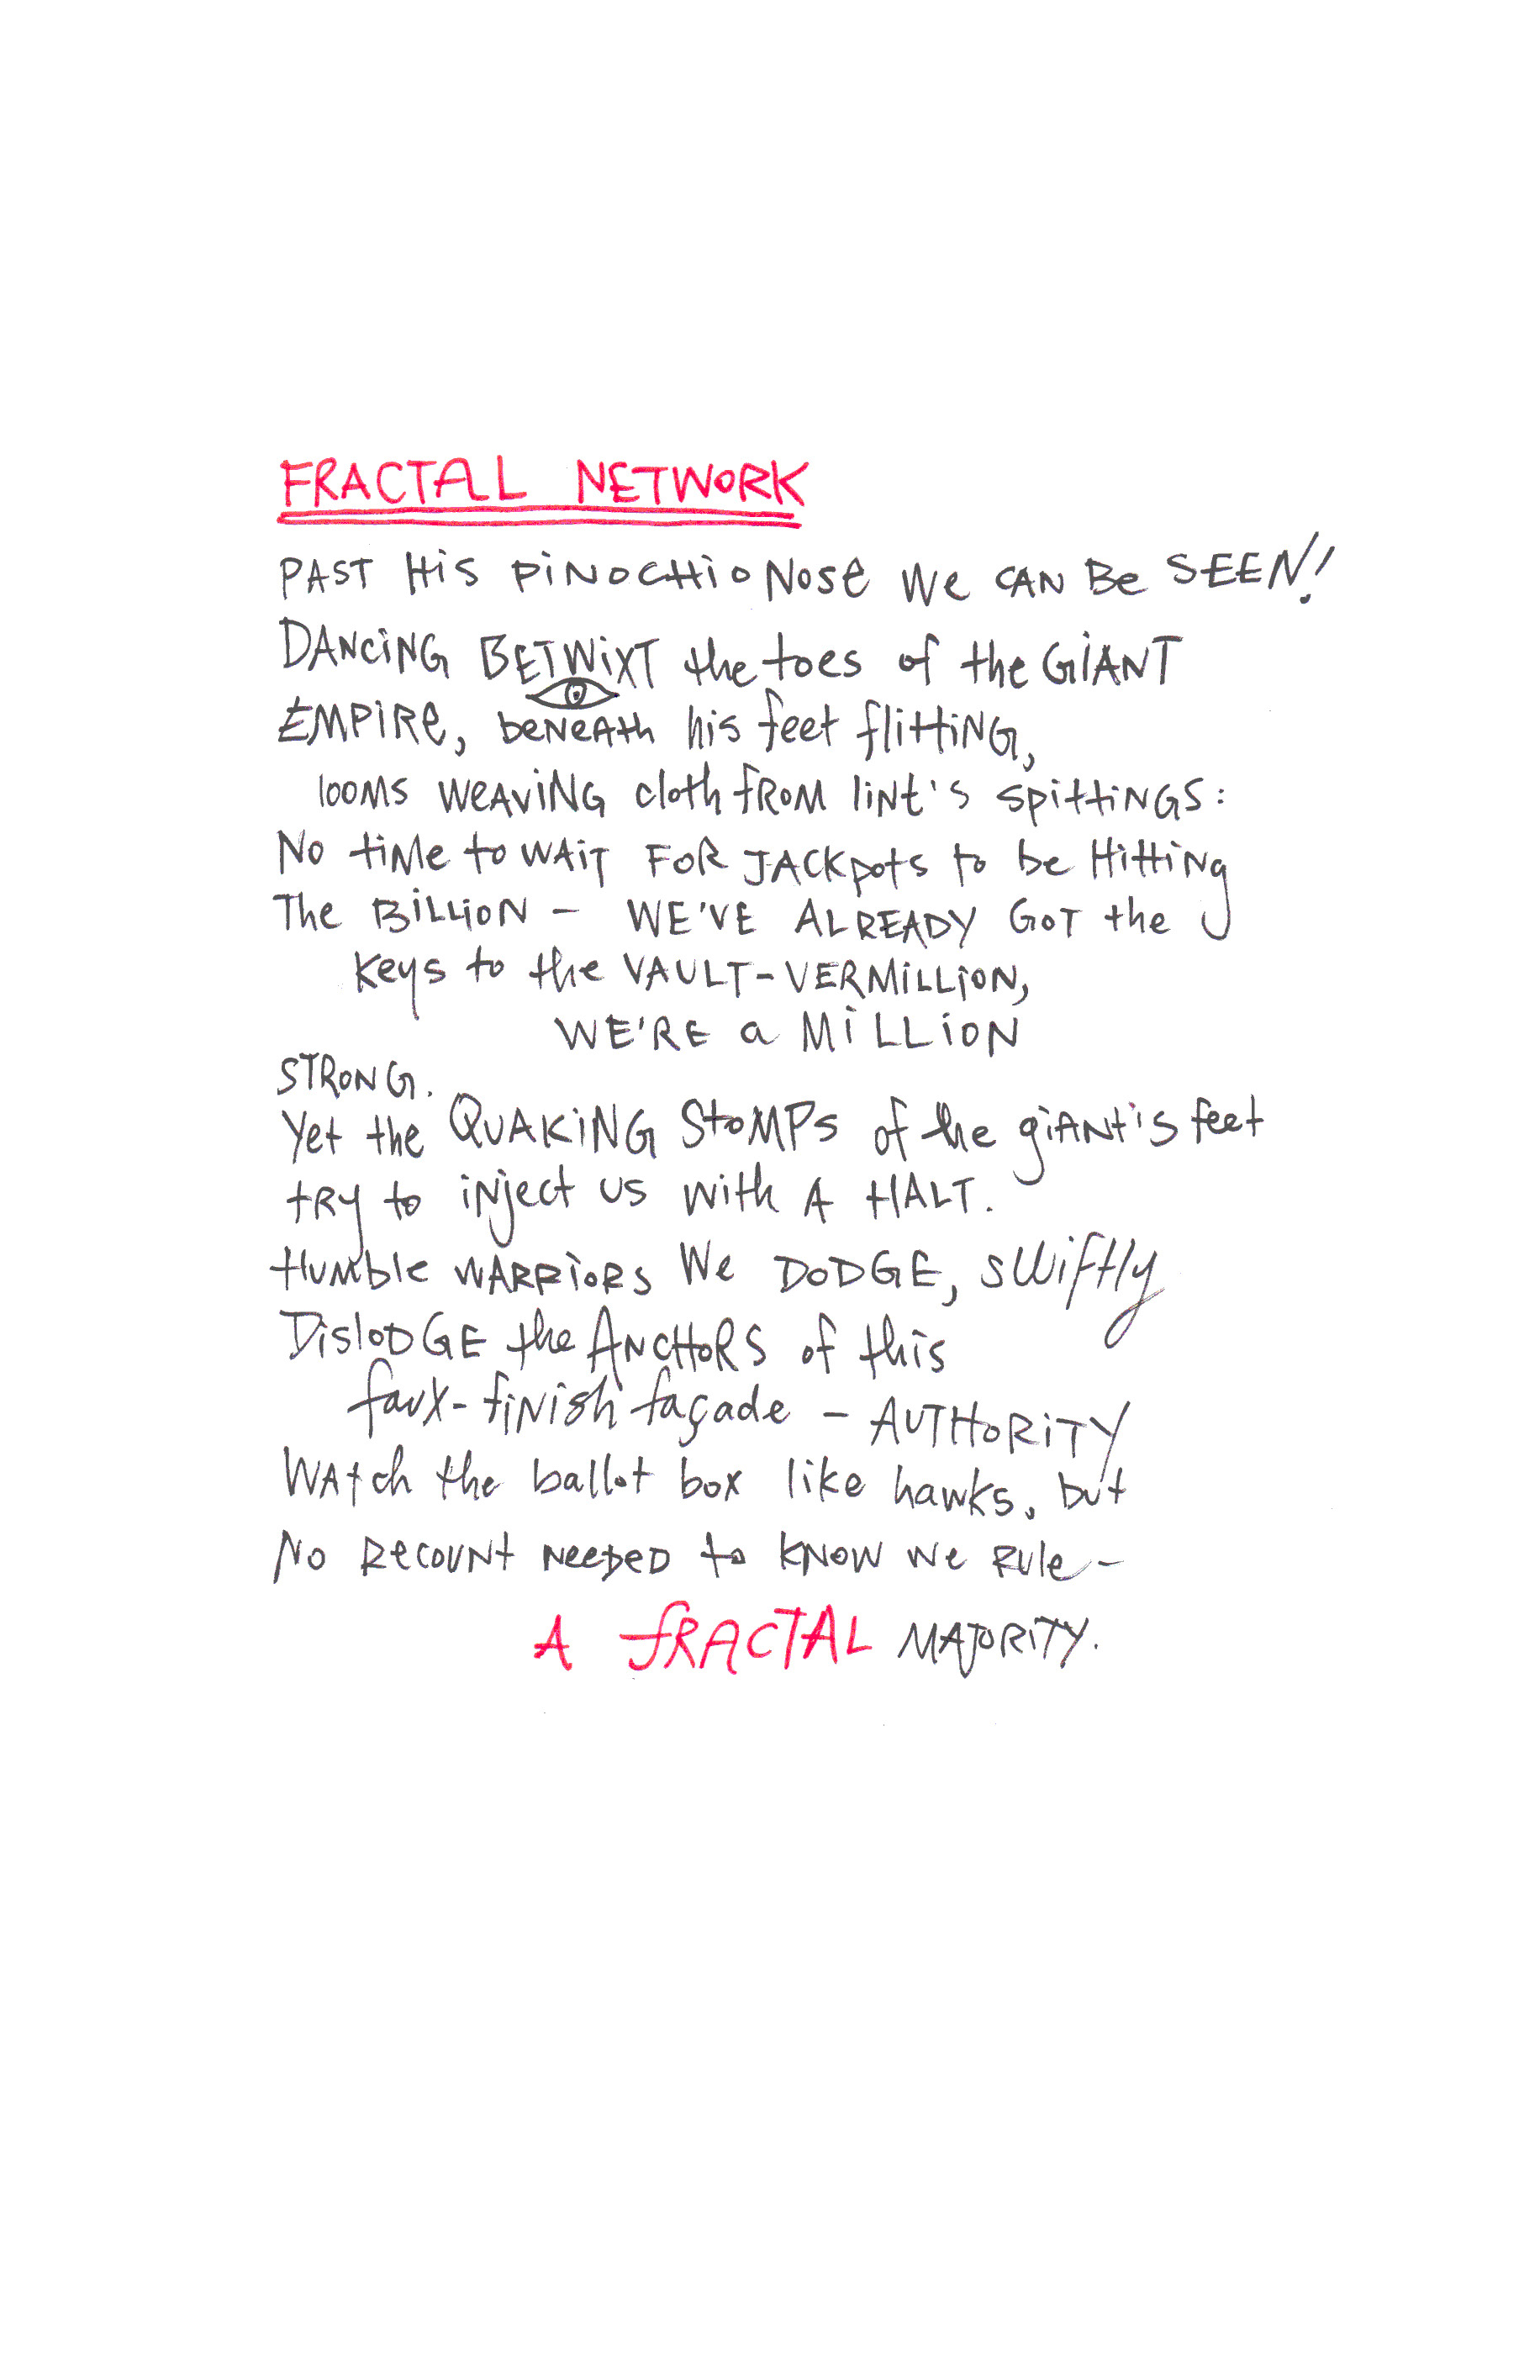 FRACTAL NETWORK
PAST HiS PiNOCHiO NoSe We CAN Be SEEN!
DANCiNG BETWiXT the toes of the GiANT
EMPiRe, beNeAth his feet flittiNG,
looMs WeAViNG cloth fRoM liNt's spittiNGS:
No tiMe to WAiT FoR JACKpots to be HittiNg
The BiLLiON – WE'VE ALREADY GoT the
Keys to the VAULT-VERMiLLiON,
WE'RE a MiLLiON
STRoNG.
Yet the QUAKiNG StoMPs of the giANt's feet
tRy to iNject us with A HALT.
HuMble WARRioRS We DoDGE, swiftly
DislODGE the ANCHoRS of this
faux-fiNish façade – AUTHoRiTY
WAtch the ballot box like hawks, but
No RecouNt NeeDeD to KNOW We RUle –
A fRACTAL MAJoRiTY.